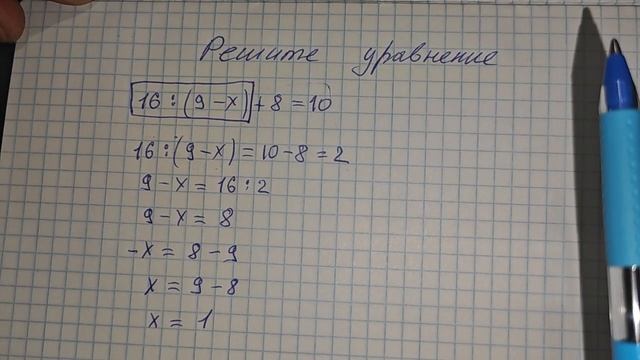 Решите уравнение
16 : (9 – x) + 8 = 10
16 : (9 – x) = 10 – 8 = 2
9 – x = 16 : 2
9 – x = 8
– x = 8 – 9
x = 9 – 8
x = 1